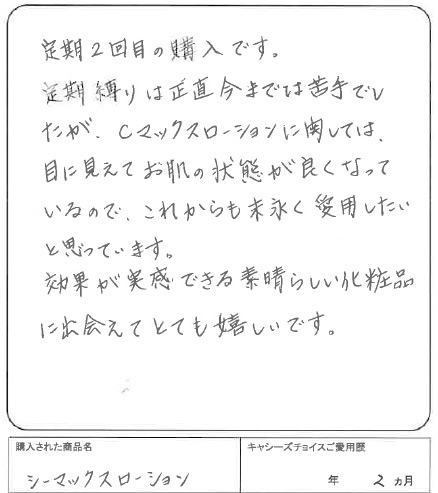 定期2回目の購入です。
定期縛りは正直今までは苦手でし
たが、Cマックスローションに関しては、
目に見えてお肌の状態が良くなって
いるので、これからも末永く愛用したい
と思っています。
効果が実感できる素晴らしい化粧品
に出会えてとても嬉しいです。
購入された商品名
シーマックスローション
キャシーズチョイスご愛用歴
年 2 ヵ月